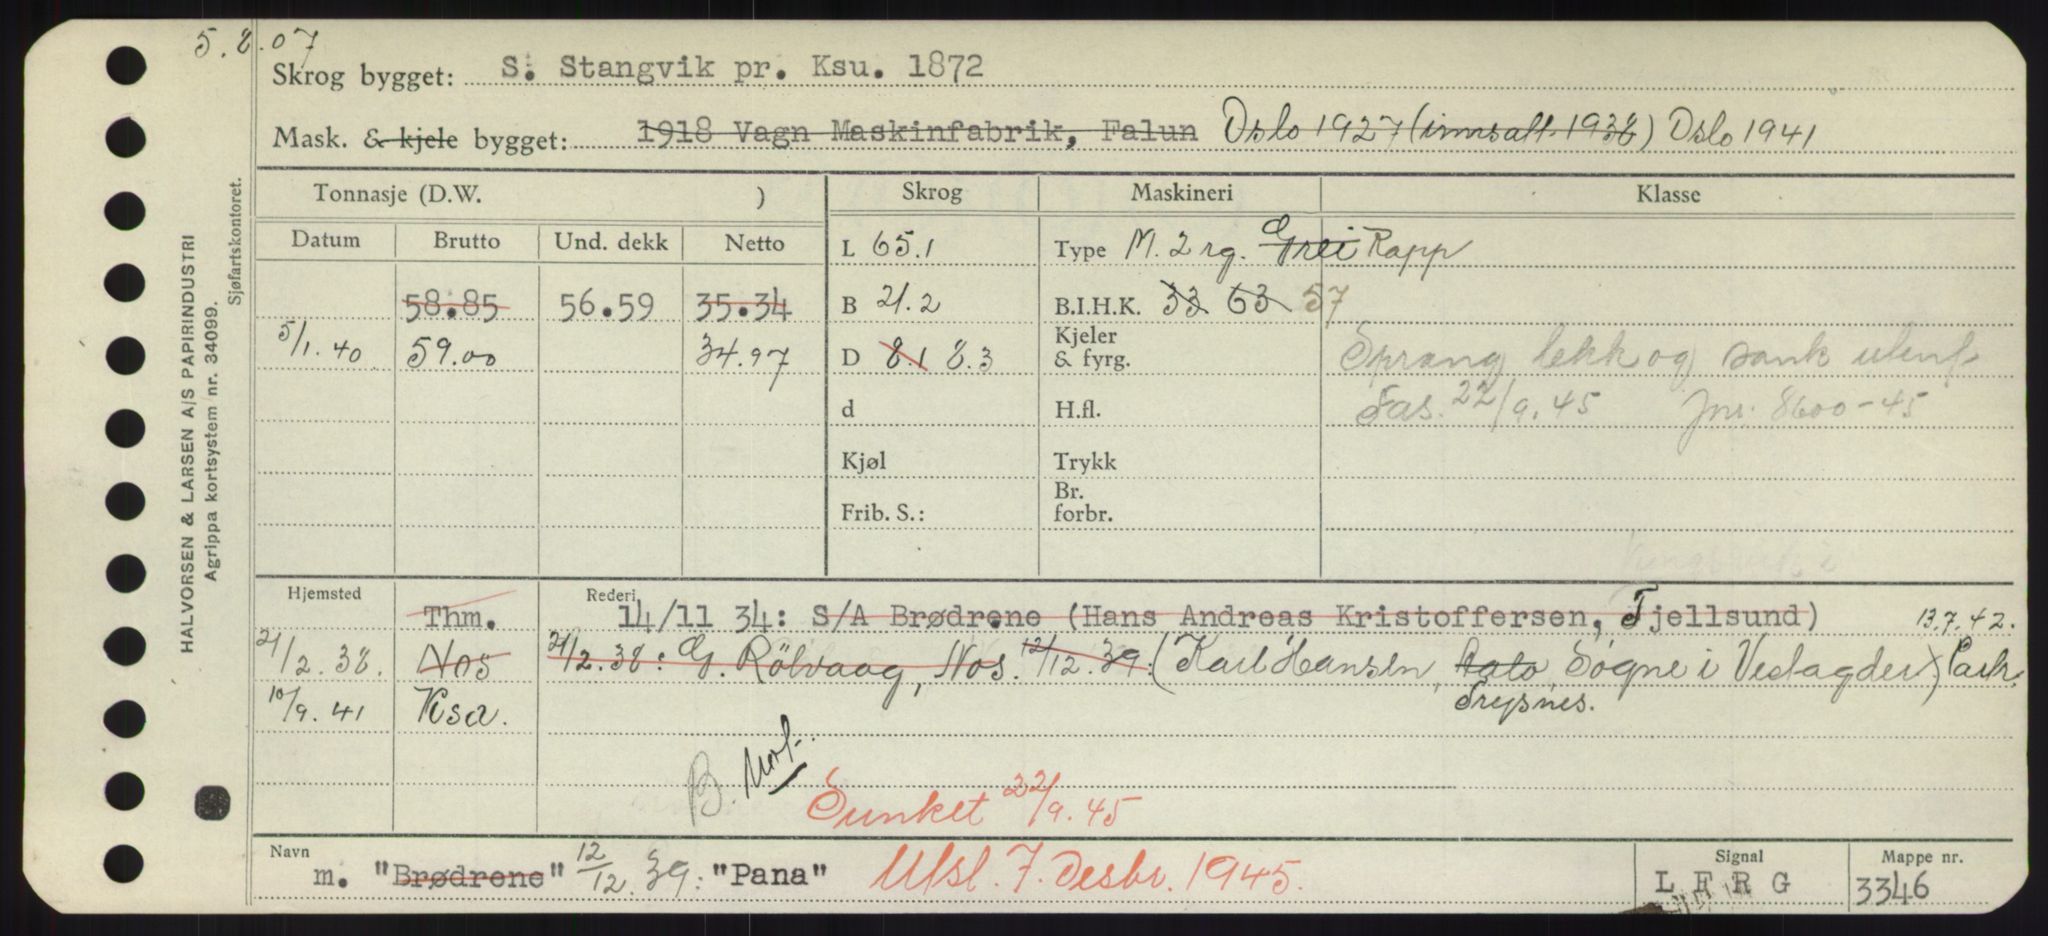 5.8.07
Skrog bygget: S. Stangvik pr. Ksu. 1872
Mask. & kjele bygget: 1918 Vagn Maskinfabrik, Falun Oslo 1927 (innsatt 1938) Oslo 1941
Tonnasje (D.W. ) Skrog Maskineri Klasse
Datum Brutto Und. dekk Netto
L 65.1 Type M. 2 rg. Grei Rapp
58.85 56.59 35.34 B 21.2 B.I.H.K. 33 63 57
5/1.40 59.00 34.97 D 8.1 8.3 Kjeler & fyrg.
Sprang lekk og sank utenf.
d H.fl. 22/9.45 Jnr. 8600-45
Kjøl Trykk
Frib. S.: Br. forbr.
Hjemsted Rederi
Thm. 14/11 34: S/A Brødrene (Hans Andreas Kristoffersen, Fjellsund) 13.7.42.
21/2.38. Nos 21/2.38: G. Rölvaag, Nos. 12/12.39: (Karl Hansen, Søgne i Vestagder)
10/9.41 Ksa. Trysnes.
B. Norf.
Sunket 22/9.45
Navn Signal Mappe nr.
m. "Brødrene" 12/12.39: "Pana" Utsl. 7. desbr. 1945. L F R G 3346
HALVORSEN & LARSEN A/S PAPIRINDUSTRI
Agrippa kortsystem nr. 34099.
Sjøfartskontoret.